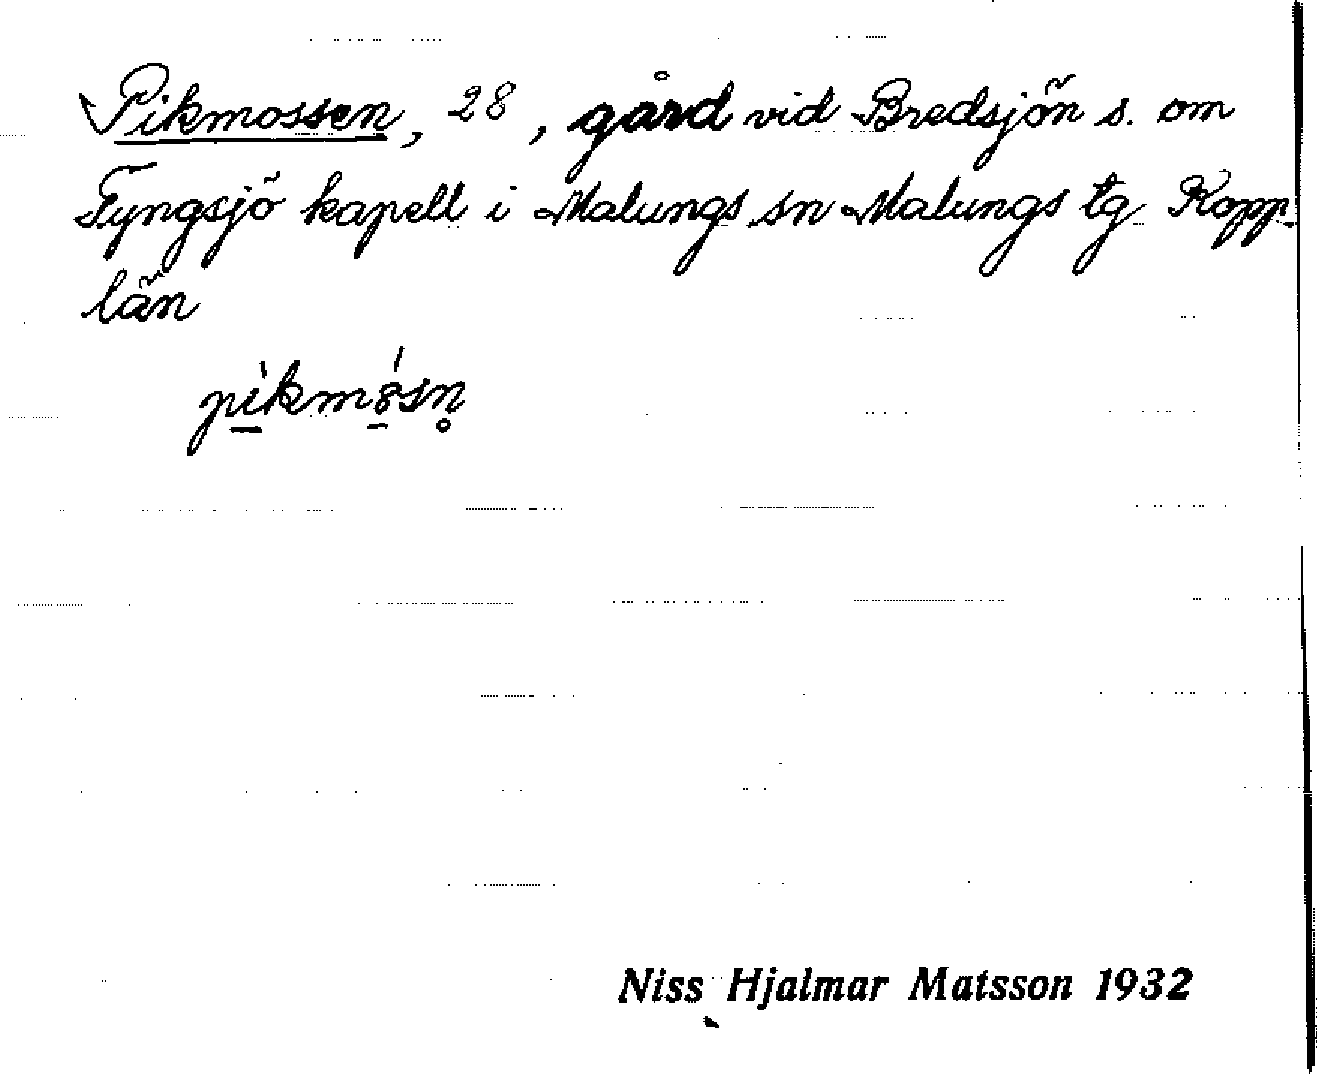 Pikmossen, 28, gård vid Bredsjön s. om
Tyngsjö kapell i Malungs sn Malungs tg Kopp.
län
pìkmósn̥
Niss Hjalmar Matsson 1932